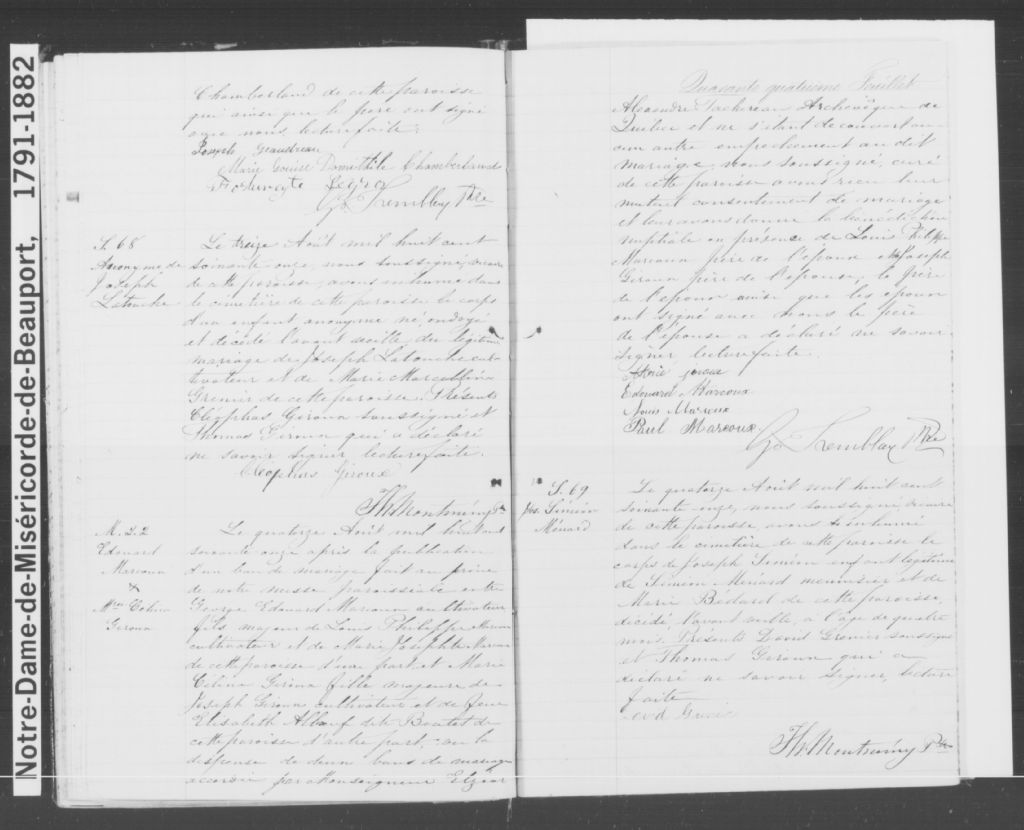 Notre-Dame-de-Miséricorde-de-Beauport, 1791-1882
Chamberland de cette paroisse
qui ainsi que le père ont signé
avec nous lecture faite.
Joseph Gaudreau
Marie Louise Domithile Chamberland
Fortunate
Gs Tremblay Ptre
S. 68
Anonyme de
Joseph
Latouche
Le treize Août mil huit cent
soixante onze, nous soussigné, vicaire
de cette paroisse, avons inhumé dans
le cimetière de cette paroisse le corps
d'un enfant anonyme né, ondoyé
et décédé l'avant veille, du légitime
mariage de Joseph Latouche cul-
tivateur et de Marie Marcelline
Grenier de cette paroisse. Présents
Cléophas Giroux soussigné et
Thomas Giroux qui a déclaré
ne savoir signer, lecture faite.
Cleophas Giroux
Th. Montminy Ptre
M. 22
Edouard
Marcoux
&
Mie Célina
Giroux
Le quatorze Août mil huit cent
soixante onze après la publication
d'un ban de mariage fait au prône
de notre messe paroissiale entre
George Edouard Marcoux cultivateur
fils majeur de Louis Philippe Marcoux
cultivateur et de Marie Josephte
de cette paroisse d'une part, et Marie
Célina Giroux fille majeure de
Joseph Giroux cultivateur et de feue
Elisabeth dite Boutet de
cette paroisse d'autre part, vu la
dispense de deux bans de mariage
accordée par Monseigneur Elzéar
Quarante quatrième Feuillet
Alexandre Taschereau Archevêque de
Québec et ne s'étant découvert au-
cun autre empêchement au dit
mariage nous soussigné, curé
de cette paroisse avons reçu leur
mutuel consentement de mariage
et leur avons donné la bénédiction
nuptiale en présence de Louis Philippe
Marcoux père de l'époux et Joseph
Giroux père de l'épouse, le père
de l'époux ainsi que les époux
ont signé avec nous le père
de l'épouse a déclaré ne savoir
signer lecture faite.
giroux
Edouard Marcoux
Louis Marcoux
Paul Marcoux
Gs Tremblay Ptre
S. 69
Jos. Siméon
Ménard
Le quatorze Août mil huit cent
soixante onze, nous soussigné, vicaire
de cette paroisse, avons inhumé
dans le cimetière de cette paroisse le
corps de Joseph Siméon enfant légitime
de Siméon Ménard menuisier et de
Marie Bédard de cette paroisse,
décédé, l'avant veille, à l'âge de quatre
mois. Présents David Grenier soussigné
et Thomas Giroux qui a
déclaré ne savoir signer, lecture
faite
Th. Montminy Ptre